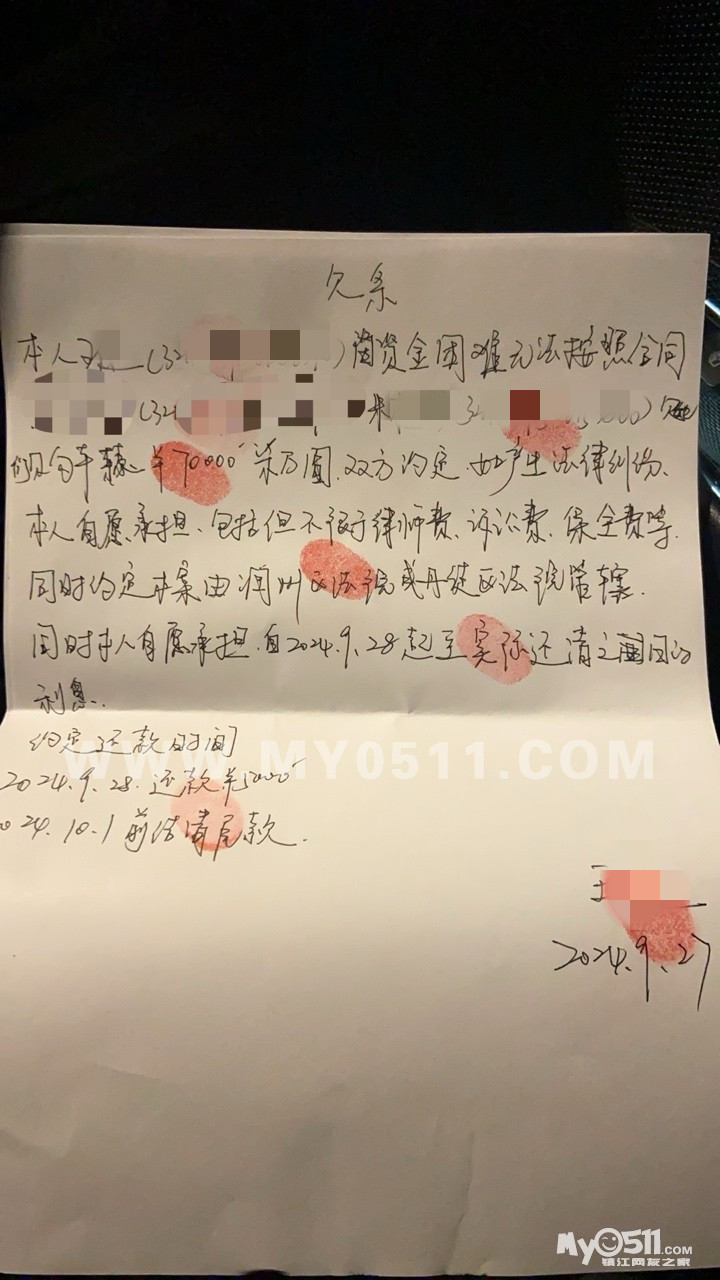 欠条
本人王 (32 )因资金困难无法按照合同
(32
¥70000 柒万圆.双方约定.如产生法律纠纷、
本人自愿承担、包括但不限于律师费、诉讼费、保全费等.
同时约定本案由润州区法院或丹徒区法院管辖.
同时本人自愿承担.自2024.9.28起至实际还清之 间的
利息.
约定还款时间
2024.9.28.还款 5000
024.10.1前结清尾款.
王
2024.9.27
WWW.MY0511.COM
My0511.COM
镇江网友之家